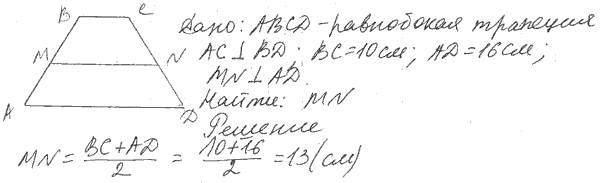 B C
M N
A D
Дано: ABCD - равнобокая трапеция
AC ⊥ BD. BC = 10 см; AD = 16 см;
MN ⊥ AD.
Найти: MN
Решение
MN = BC + AD / 2 = 10 + 16 / 2 = 13 (см)